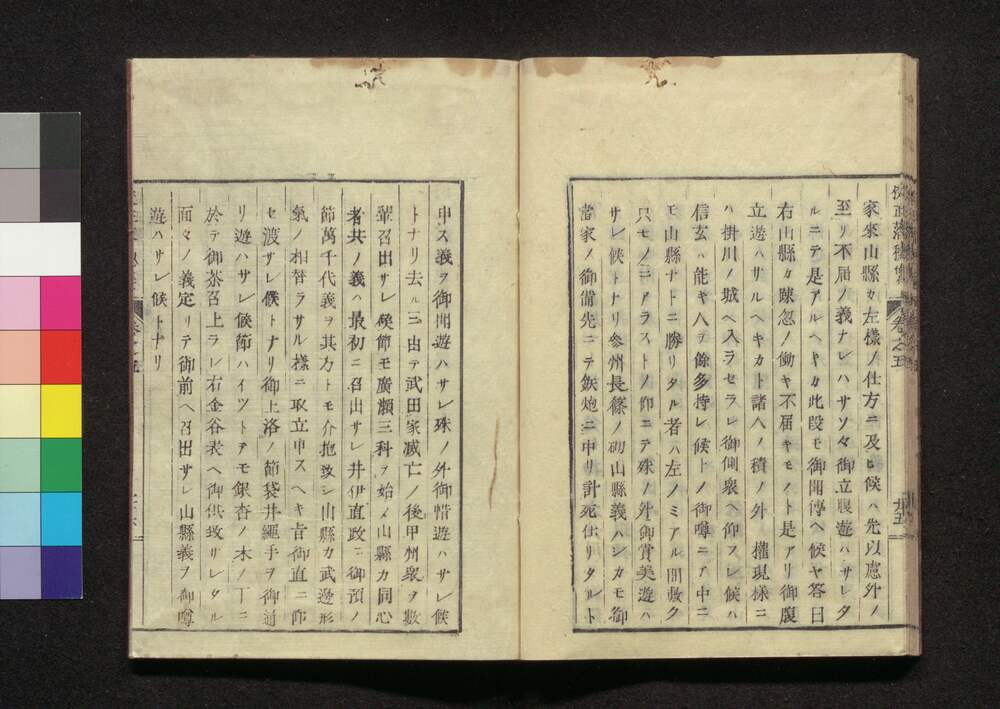 家來山縣カ左樣ノ仕方ニ及ヒ候ハ先以慮外ノ
至リ不届ノ義ナレハサソ々御立腹遊ハサレタ
ルニテ是アルヘキカ此段モ御聞傳ヘ候ヤ答曰
右山縣カ踈忽ノ働キ不届キモノト是アリ御腹
立遊ハサルヘキカト諸人ノ積ノ外 權現樣ニ
ハ掛川ノ城ヘ入ラセラレ御側衆ヘ仰スレ候ハ
信玄ハ能キ人ヲ餘多持レ候トノ御噂ニテ中ニ
モ山縣ナトニ勝リタル者ハ左ノノミアル間敷ク
只モノニアラストノ仰ニテ殊ノ外御賞美遊ハ
サレ候トナリ參州長篠ノ砌山縣義ハシカモ御
當家ノ御備先ニテ鉄炮ニ中リ討死仕リタルト
卷之五
廿五
申ス義ヲ御聞遊ハサレ殊ノ外御惜遊ハサレ候
トナリ去ルニ由テ武田家滅亡ノ後甲州衆ヲ數
輩召出サレ候節モ廣瀬三科ヲ始メ山縣カ同心
者共ノ義ハ最初ニ召出サレ井伊直政ニ御預ノ
節萬千代義ヲ其方トモ介抱致シ山縣カ武邊形
氣ノ相替ラサル樣ニ取立申スヘキ旨御直ニ仰
セ渡サレ候トナリ御上洛ノ節袋井繩手ヲ御通
リ遊ハサレ候節ハイツトテモ銀杏ノ木ノ下ニ
於テ御茶召上ラレ右金谷表ヘ御供致サレタル
面々ノ義定リテ御前ヘ召出サレ山縣義ヲ御噂
遊ハサレ候トナリ